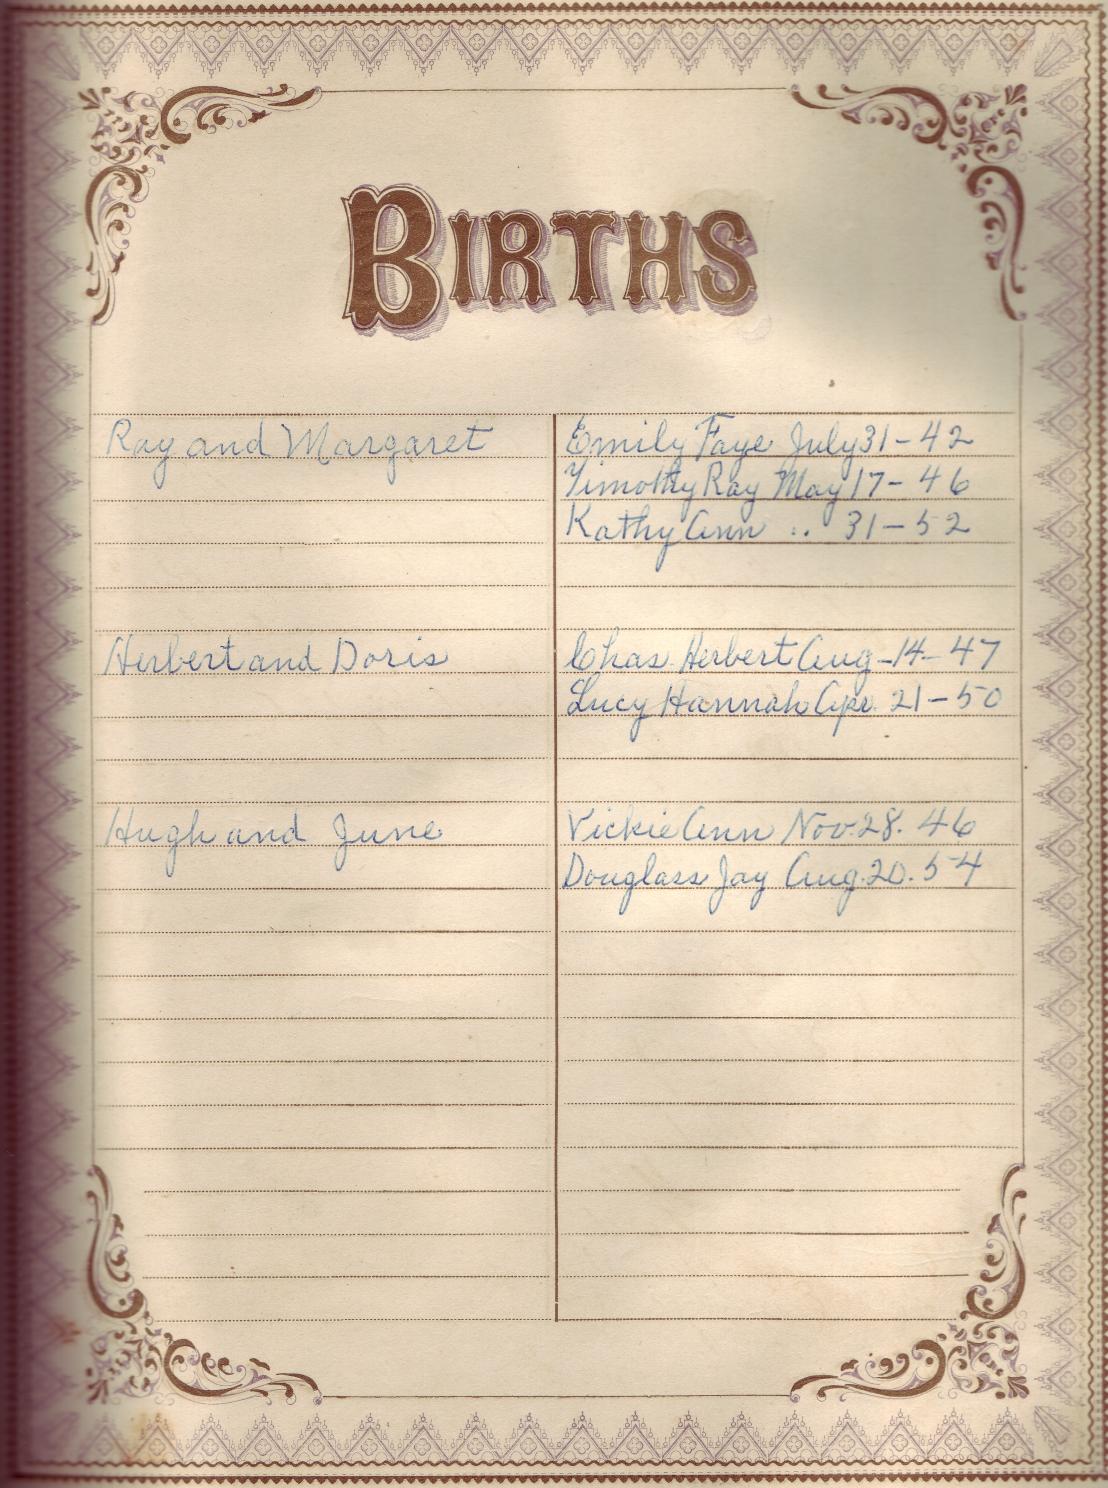 BIRTHS
Ray and Margaret Emily Faye July 31-42
Timothy Ray May 17-46
Kathy Ann " 31-52
Herbert and Doris Chas. Herbert Aug-14-47
Lucy Hannah Apr. 21-50
Hugh and June Vickie Ann Nov. 28. 46
Douglass Jay Aug. 20. 54